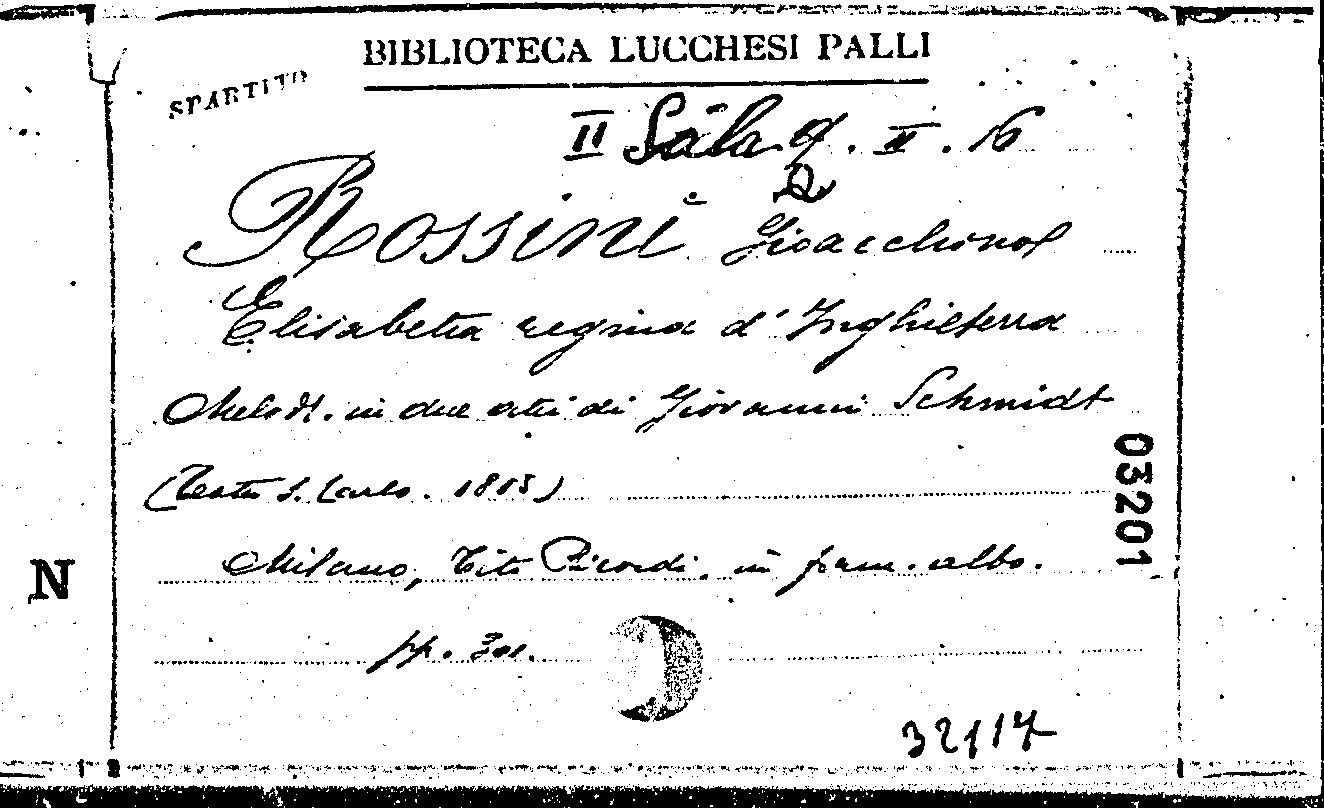 BIBLIOTECA LUCCHESI PALLI
SPARTITO
II Sala . II . 16
Rossini Gioacchino
Elisabetta regina d'Inghilterra
Melodr. in due atti di Giovanni Schmidt
(Teatro S. Carlo. 1815)
03201
Milano, Tito Ricordi. in form. albo.
N
pp. 301.
32117